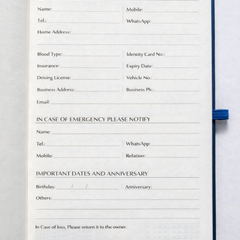 Name: Mobile:
Tel.: WhatsApp:
Home Address:
Blood Type: Identity Card No.:
Insurance: Expiry Date:
Driving License: Vehicle No.:
Business Address: Business Ph.:
Email:
IN CASE OF EMERGENCY PLEASE NOTIFY
Name:
Tel.: WhatsApp:
Mobile: Relation:
IMPORTANT DATES AND ANNIVERSARY
Birthday: / / Anniversary:
Others:
In Case of loss, Please return it to the owner.